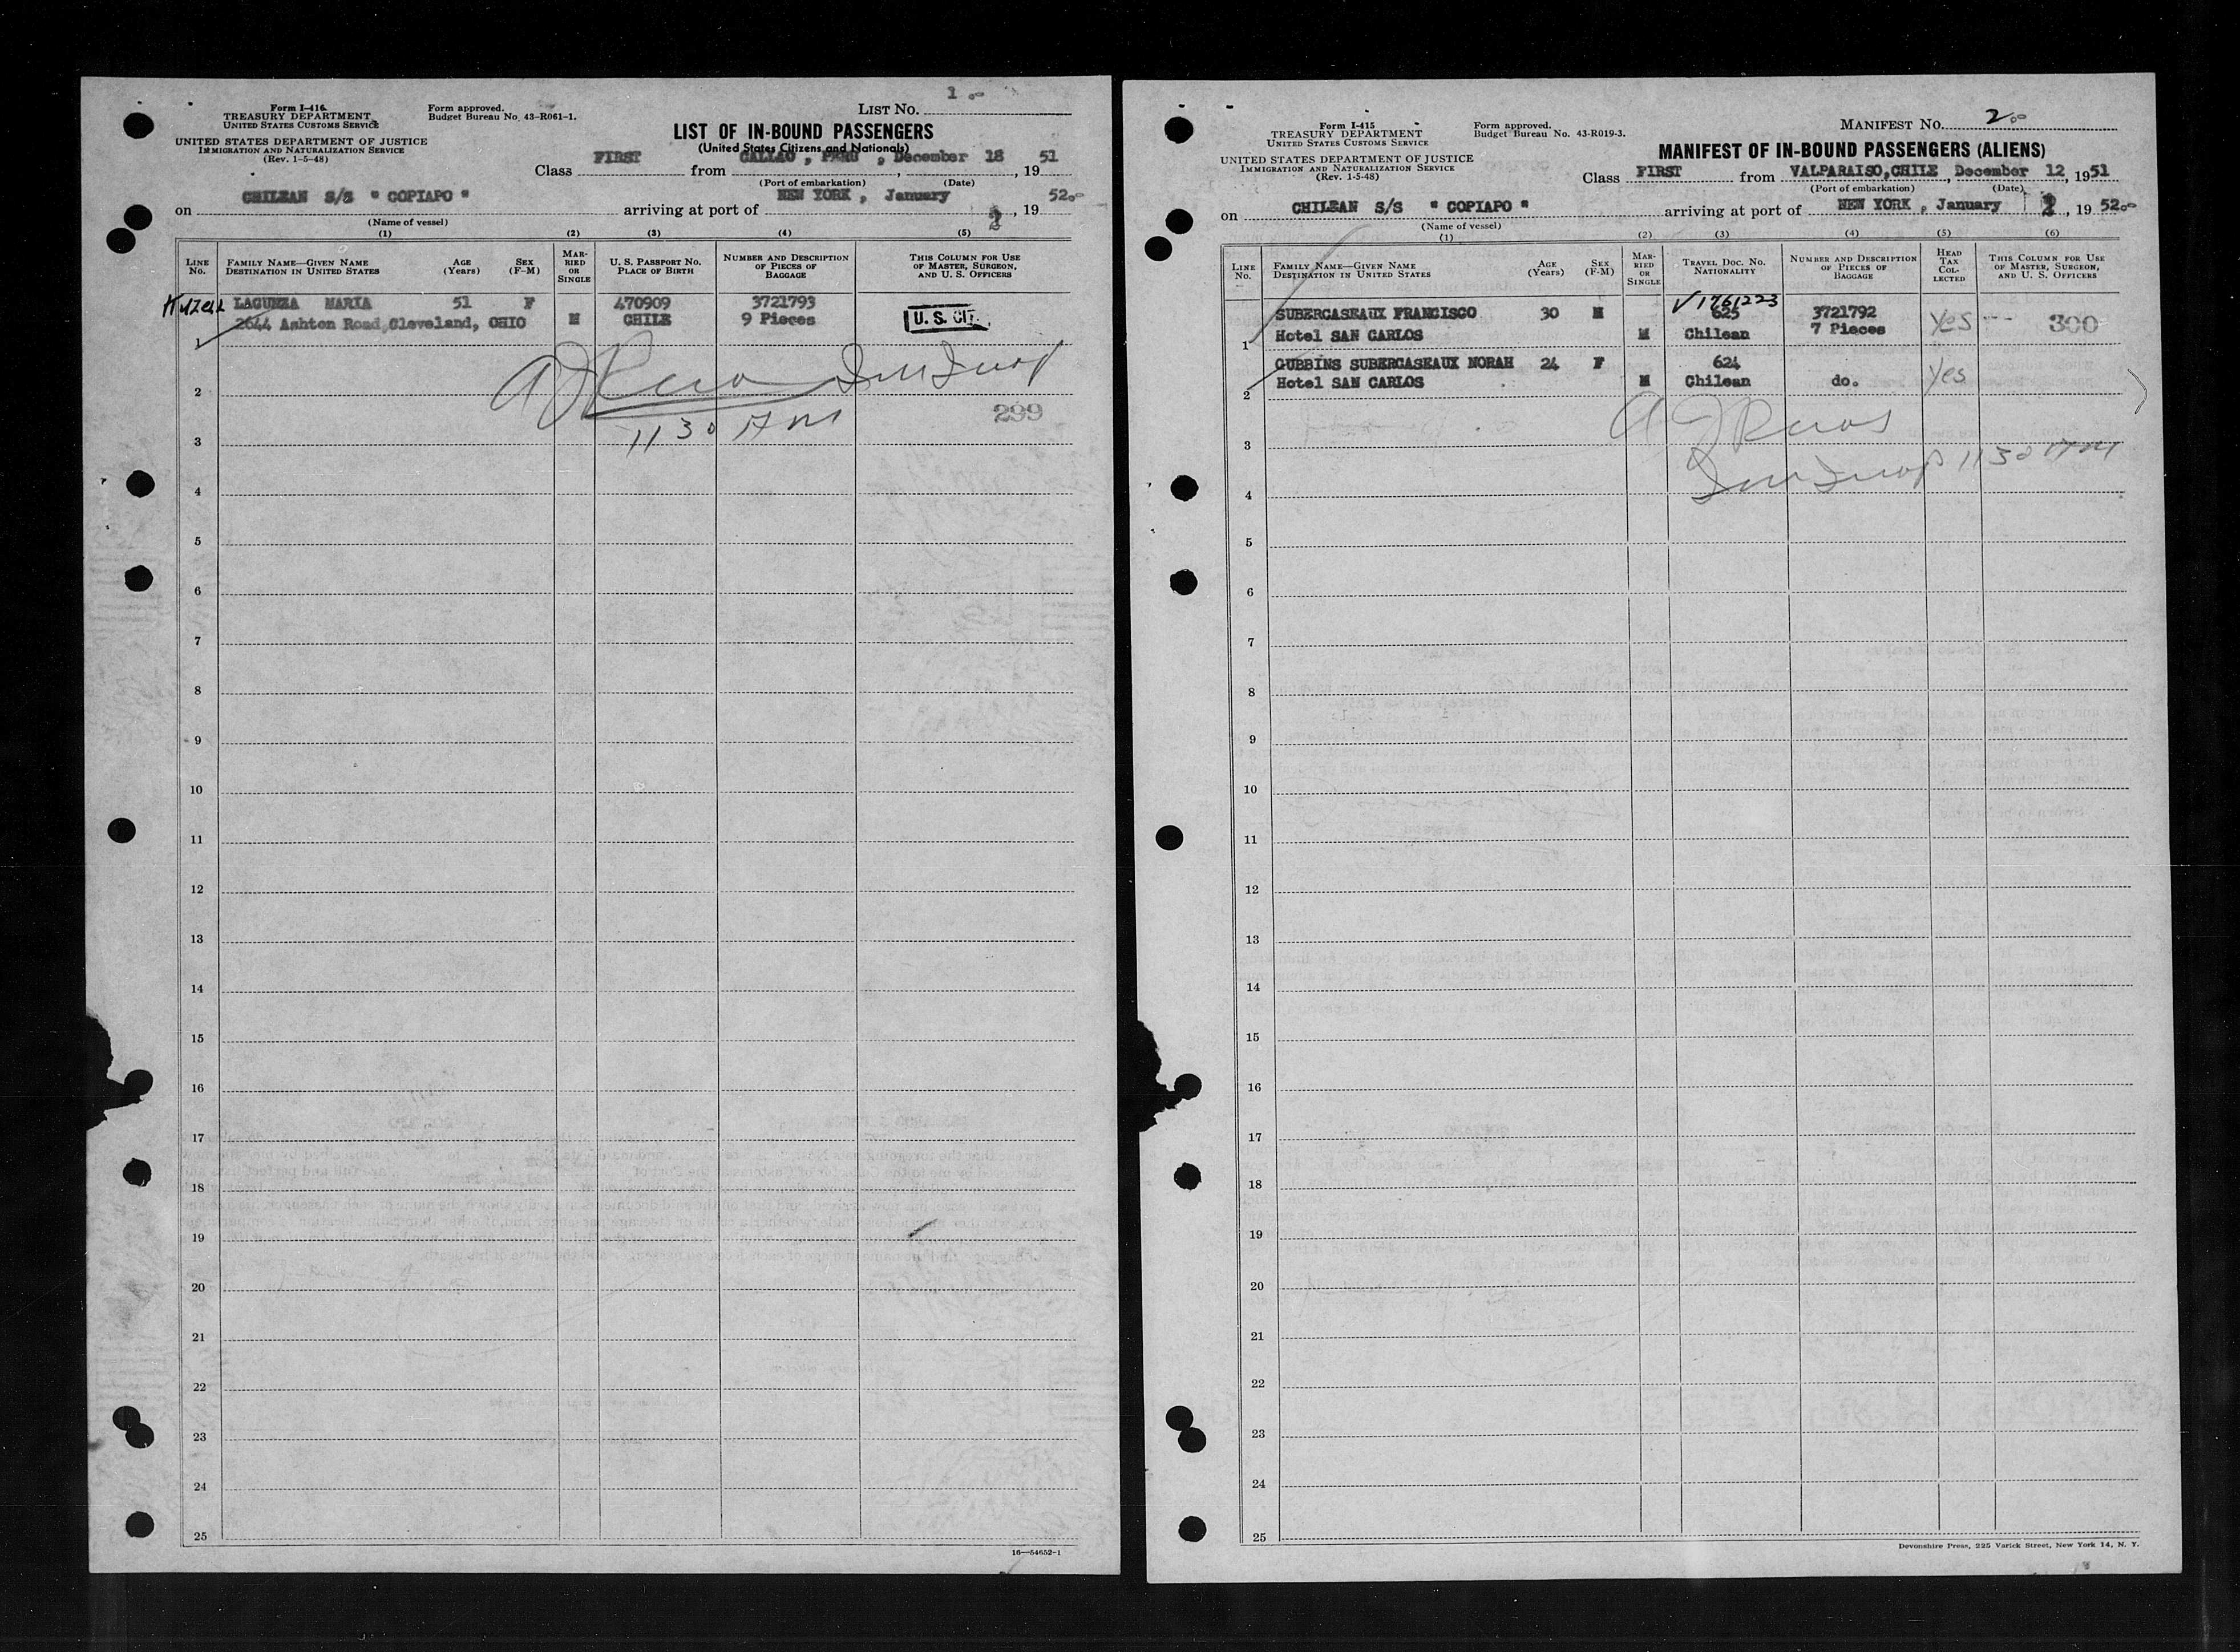 Form I-416
TREASURY DEPARTMENT
UNITED STATES CUSTOMS SERVICE
UNITED STATES DEPARTMENT OF JUSTICE
IMMIGRATION AND NATURALIZATION SERVICE
(Rev. 1-5-48)
Form approved.
Budget Bureau No. 43-R061-1.
LIST NO. 1
LIST OF IN-BOUND PASSENGERS
(United States Citizens and Nationals)
Class FIRST from CALLAO, PERU, December 18, 1951
(Port of embarkation) (Date)
on CHILEAN S/S " COPIAPO " arriving at port of NEW YORK, January 2, 1952
(Name of vessel)
(1) (2) (3) (4) (5)
LINE No. FAMILY NAME—GIVEN NAME DESTINATION IN UNITED STATES AGE (Years) SEX (F-M) MARRIED OR SINGLE U. S. PASSPORT NO. PLACE OF BIRTH NUMBER AND DESCRIPTION OF PIECES OF BAGGAGE THIS COLUMN FOR USE OF MASTER, SURGEON, AND U. S. OFFICERS
LAGUNZA MARIA 51 F 470909 3721793
1 2644 Ashton Road, Cleveland, OHIO M CHILE 9 Pieces U. S. CIT.
2
299
1130 AM
3
4
5
6
7
8
9
10
11
12
13
14
15
16
17
18
19
20
21
22
23
24
25
16—54652-1
Form I-415
TREASURY DEPARTMENT
UNITED STATES CUSTOMS SERVICE
UNITED STATES DEPARTMENT OF JUSTICE
IMMIGRATION AND NATURALIZATION SERVICE
(Rev. 1-5-48)
Form approved.
Budget Bureau No. 43-R019-3.
MANIFEST NO. 2
MANIFEST OF IN-BOUND PASSENGERS (ALIENS)
Class FIRST from VALPARAISO, CHILE, December 12, 1951
(Port of embarkation) (Date)
on CHILEAN S/S " COPIAPO " arriving at port of NEW YORK, January 2, 1952
(Name of vessel)
(1) (2) (3) (4) (5) (6)
LINE No. FAMILY NAME—GIVEN NAME DESTINATION IN UNITED STATES AGE (Years) SEX (F-M) MARRIED OR SINGLE TRAVEL DOC. NO. NATIONALITY NUMBER AND DESCRIPTION OF PIECES OF BAGGAGE HEAD TAX COLLECTED THIS COLUMN FOR USE OF MASTER, SURGEON, AND U. S. OFFICERS
V1761223
SUBERCASEAUX FRANCISCO 30 M 625 3721792
1 Hotel SAN CARLOS M Chilean 7 Pieces Yes 300
GUBBINS SUBERCASEAUX NORAH 24 F 624
2 Hotel SAN CARLOS M Chilean do. Yes
3
1130 AM
4
5
6
7
8
9
10
11
12
13
14
15
16
17
18
19
20
21
22
23
24
25
Devonshire Press, 225 Varick Street, New York 14, N. Y.